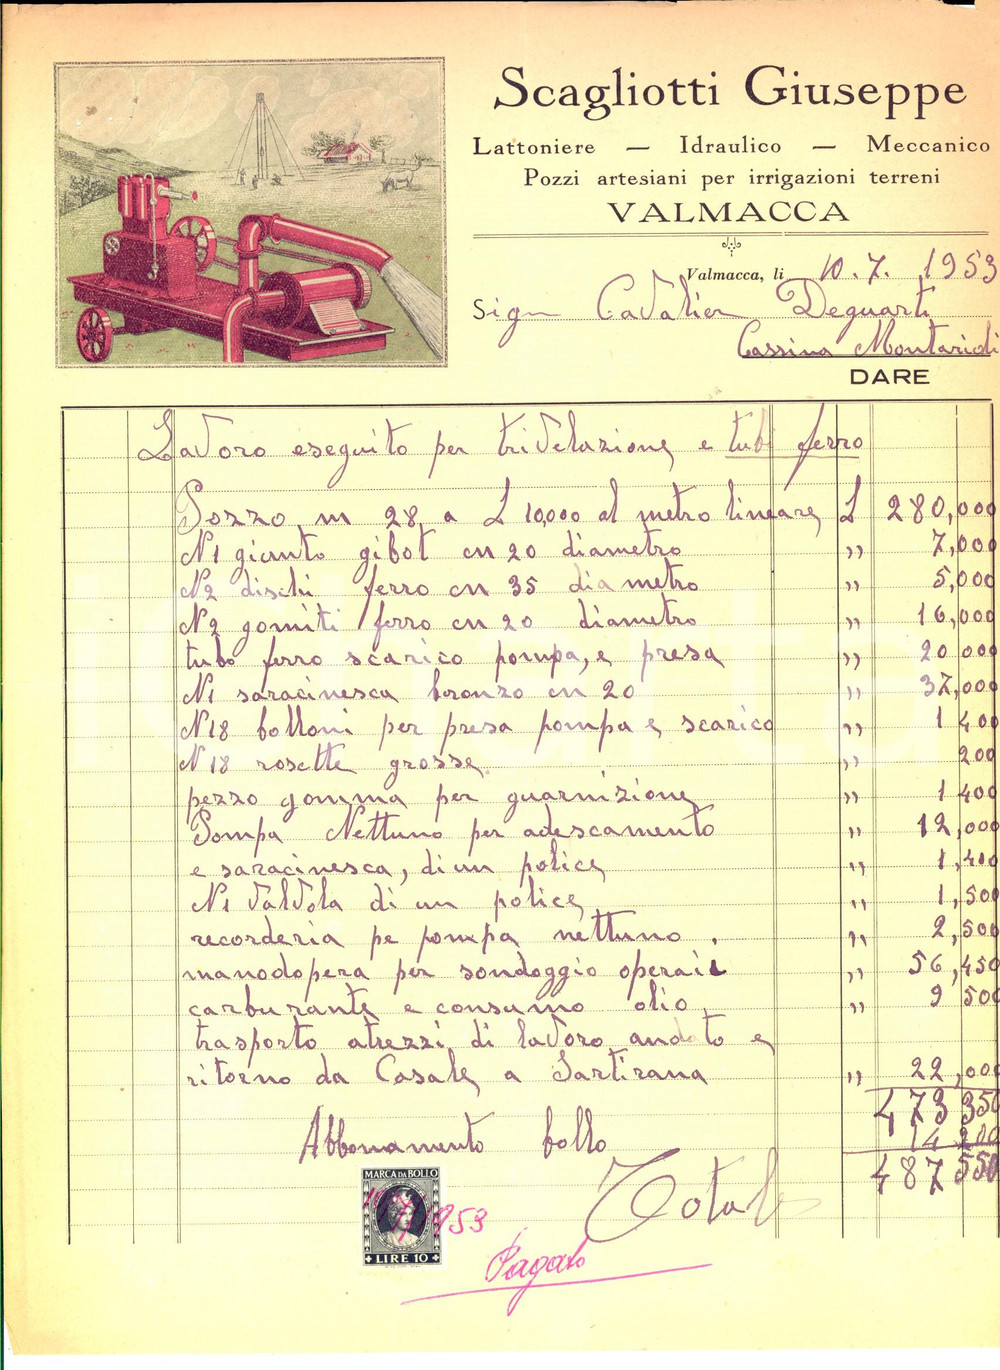 Scagliotti Giuseppe
Lattoniere — Idraulico — Meccanico
Pozzi artesiani per irrigazioni terreni
VALMACCA
Valmacca, li 10.7.1953
Sign Cavalier Deguarti
Cassina Montarioli
DARE
Lavoro eseguito per trivelazione e tubi ferro
Pozzo m 28 a £ 10,000 al metro lineare £ 280,000
N1 giunto gibot cn 20 diametro " 7,000
N2 dischi ferro cn 35 diametro " 5,000
N2 gomiti ferro cn 20 diametro " 16,000
tubo ferro scarico pompa, e presa " 20 000
N1 saracinesca bronzo cn 20 " 37,000
N18 bolloni per presa pompa e scarico " 1 400
N18 rosette grosse " 200
pezzo gomma per guarnizione " 1 400
Pompa Nettuno per adescamento " 12,000
e saracinesca, di un police " 1,400
N1 valvola di un police " 1,500
recorderia pe pompa nettuno . " 2,500
manodopera per sondoggio operaie " 56,450
carburante e consumo olio " 9 500
trasporto atrezzi di lavoro andato e
ritorno da Casale a Sartirana " 22,000
473 350
Abbonamento bollo 14 200
487 550
Totale
MARCA DA BOLLO
LIRE 10
953
Pagato